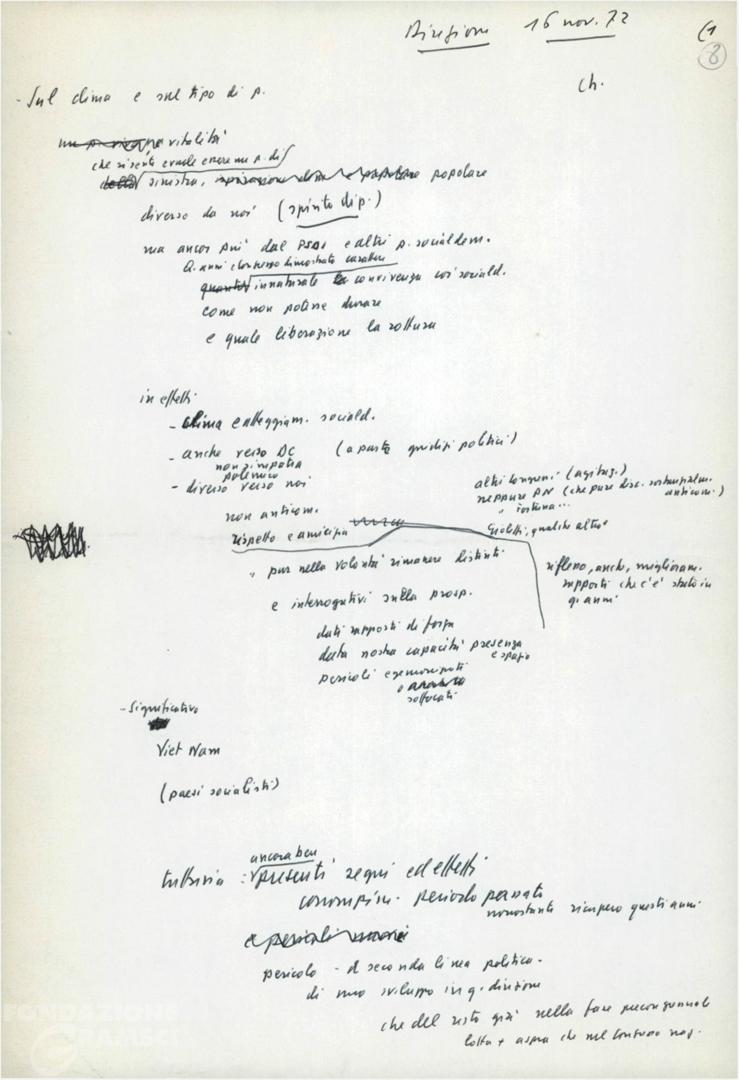 Direzione 16 nov. 72
(1
8
ch.
- Sul clima e sul tipo di p.
vitalità
che risente e vuole essere un p. di
sinistra, popolare
diverso da noi (spirito di p.)
ma ancor più dal PSDI e altri p. socialdem.
Q. anni dimostrato carattere
innaturale convivenza coi sociald.
come non potesse durare
e quale liberazione la rottura
in effetti
- clima e atteggiam. sociald.
- anche verso DC (a parte giudizi politici)
non simpatia
polemico
- diverso verso noi
non anticom.
rispetto e amicizia
altri congressi (aggiug.)
neppure PN (che pure disc. anticom.)
Giolitti, qualche altro
riflesso, anche, miglioram.
rapporti che c'è stato in
q. anni
pur nella volontà rimanere distinti
e interrogativi sulla prosp.
dati rapporti di forza
data nostra capacità presenza
e spazio
pericoli egemonizzati
o
soffocati
- Significativo
Viet Nam
(paesi socialisti)
ancora ben
tuttavia : presenti segni ed effetti
periodo passato
nonostante ricupero questi anni
e pericoli
pericolo - d seconda linea politica -
di uno sviluppo in q. direzione
che del resto già nella fase precongressuale
lotta + aspra che nel congresso naz.
FONDAZIONE
GRAMSCI